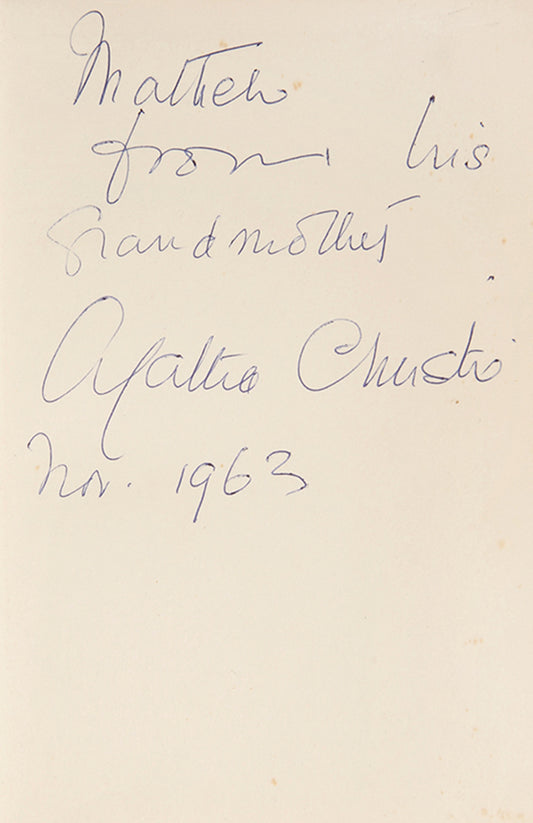 Matthew
from his
Grandmother
Agatha Christie
Nov. 1963